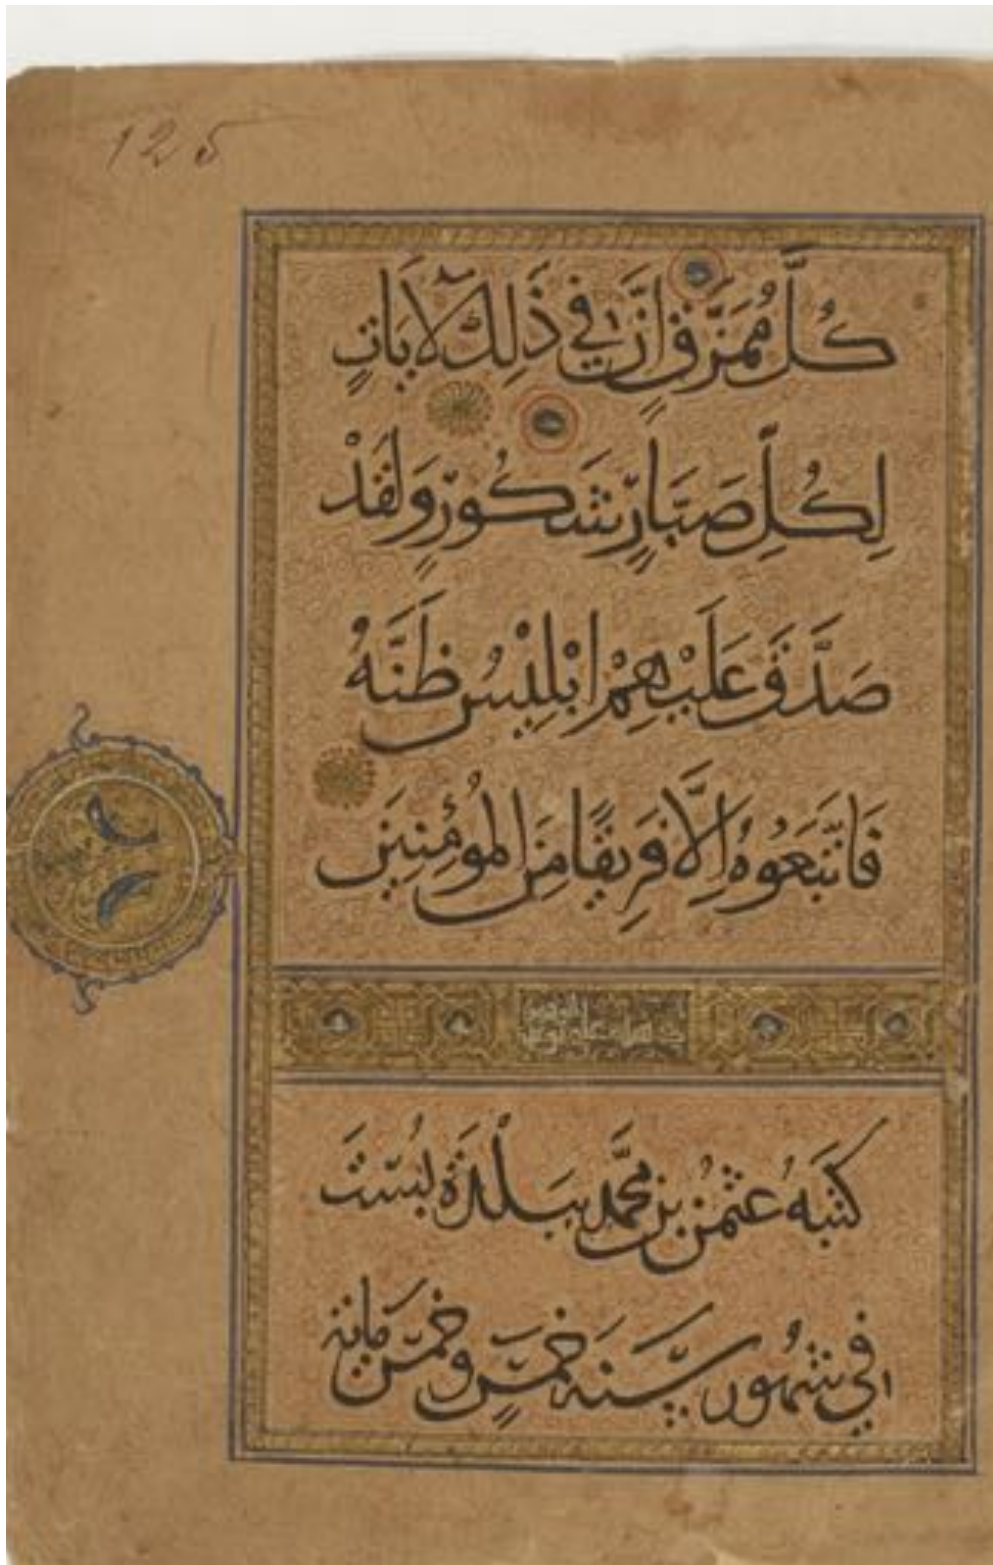 125
كُلَّ مُمَزَّقٍ إِنَّ فِي ذَلِكَ لَآيَاتٍ
لِكُلِّ صَبَّارٍ شَكُورٍ وَلَقَدْ
صَدَّقَ عَلَيْهِمْ إِبْلِيسُ ظَنَّهُ
فَاتَّبَعُوهُ إِلَّا فَرِيقًا مِنَ الْمُؤْمِنِينَ
كَتَبَهُ عُثْمٰنُ بْنُ مُحَمَّدٍ بِبَلْدَةِ بُسْتَ
في شهور سنة خمسٍ وخمس مائة